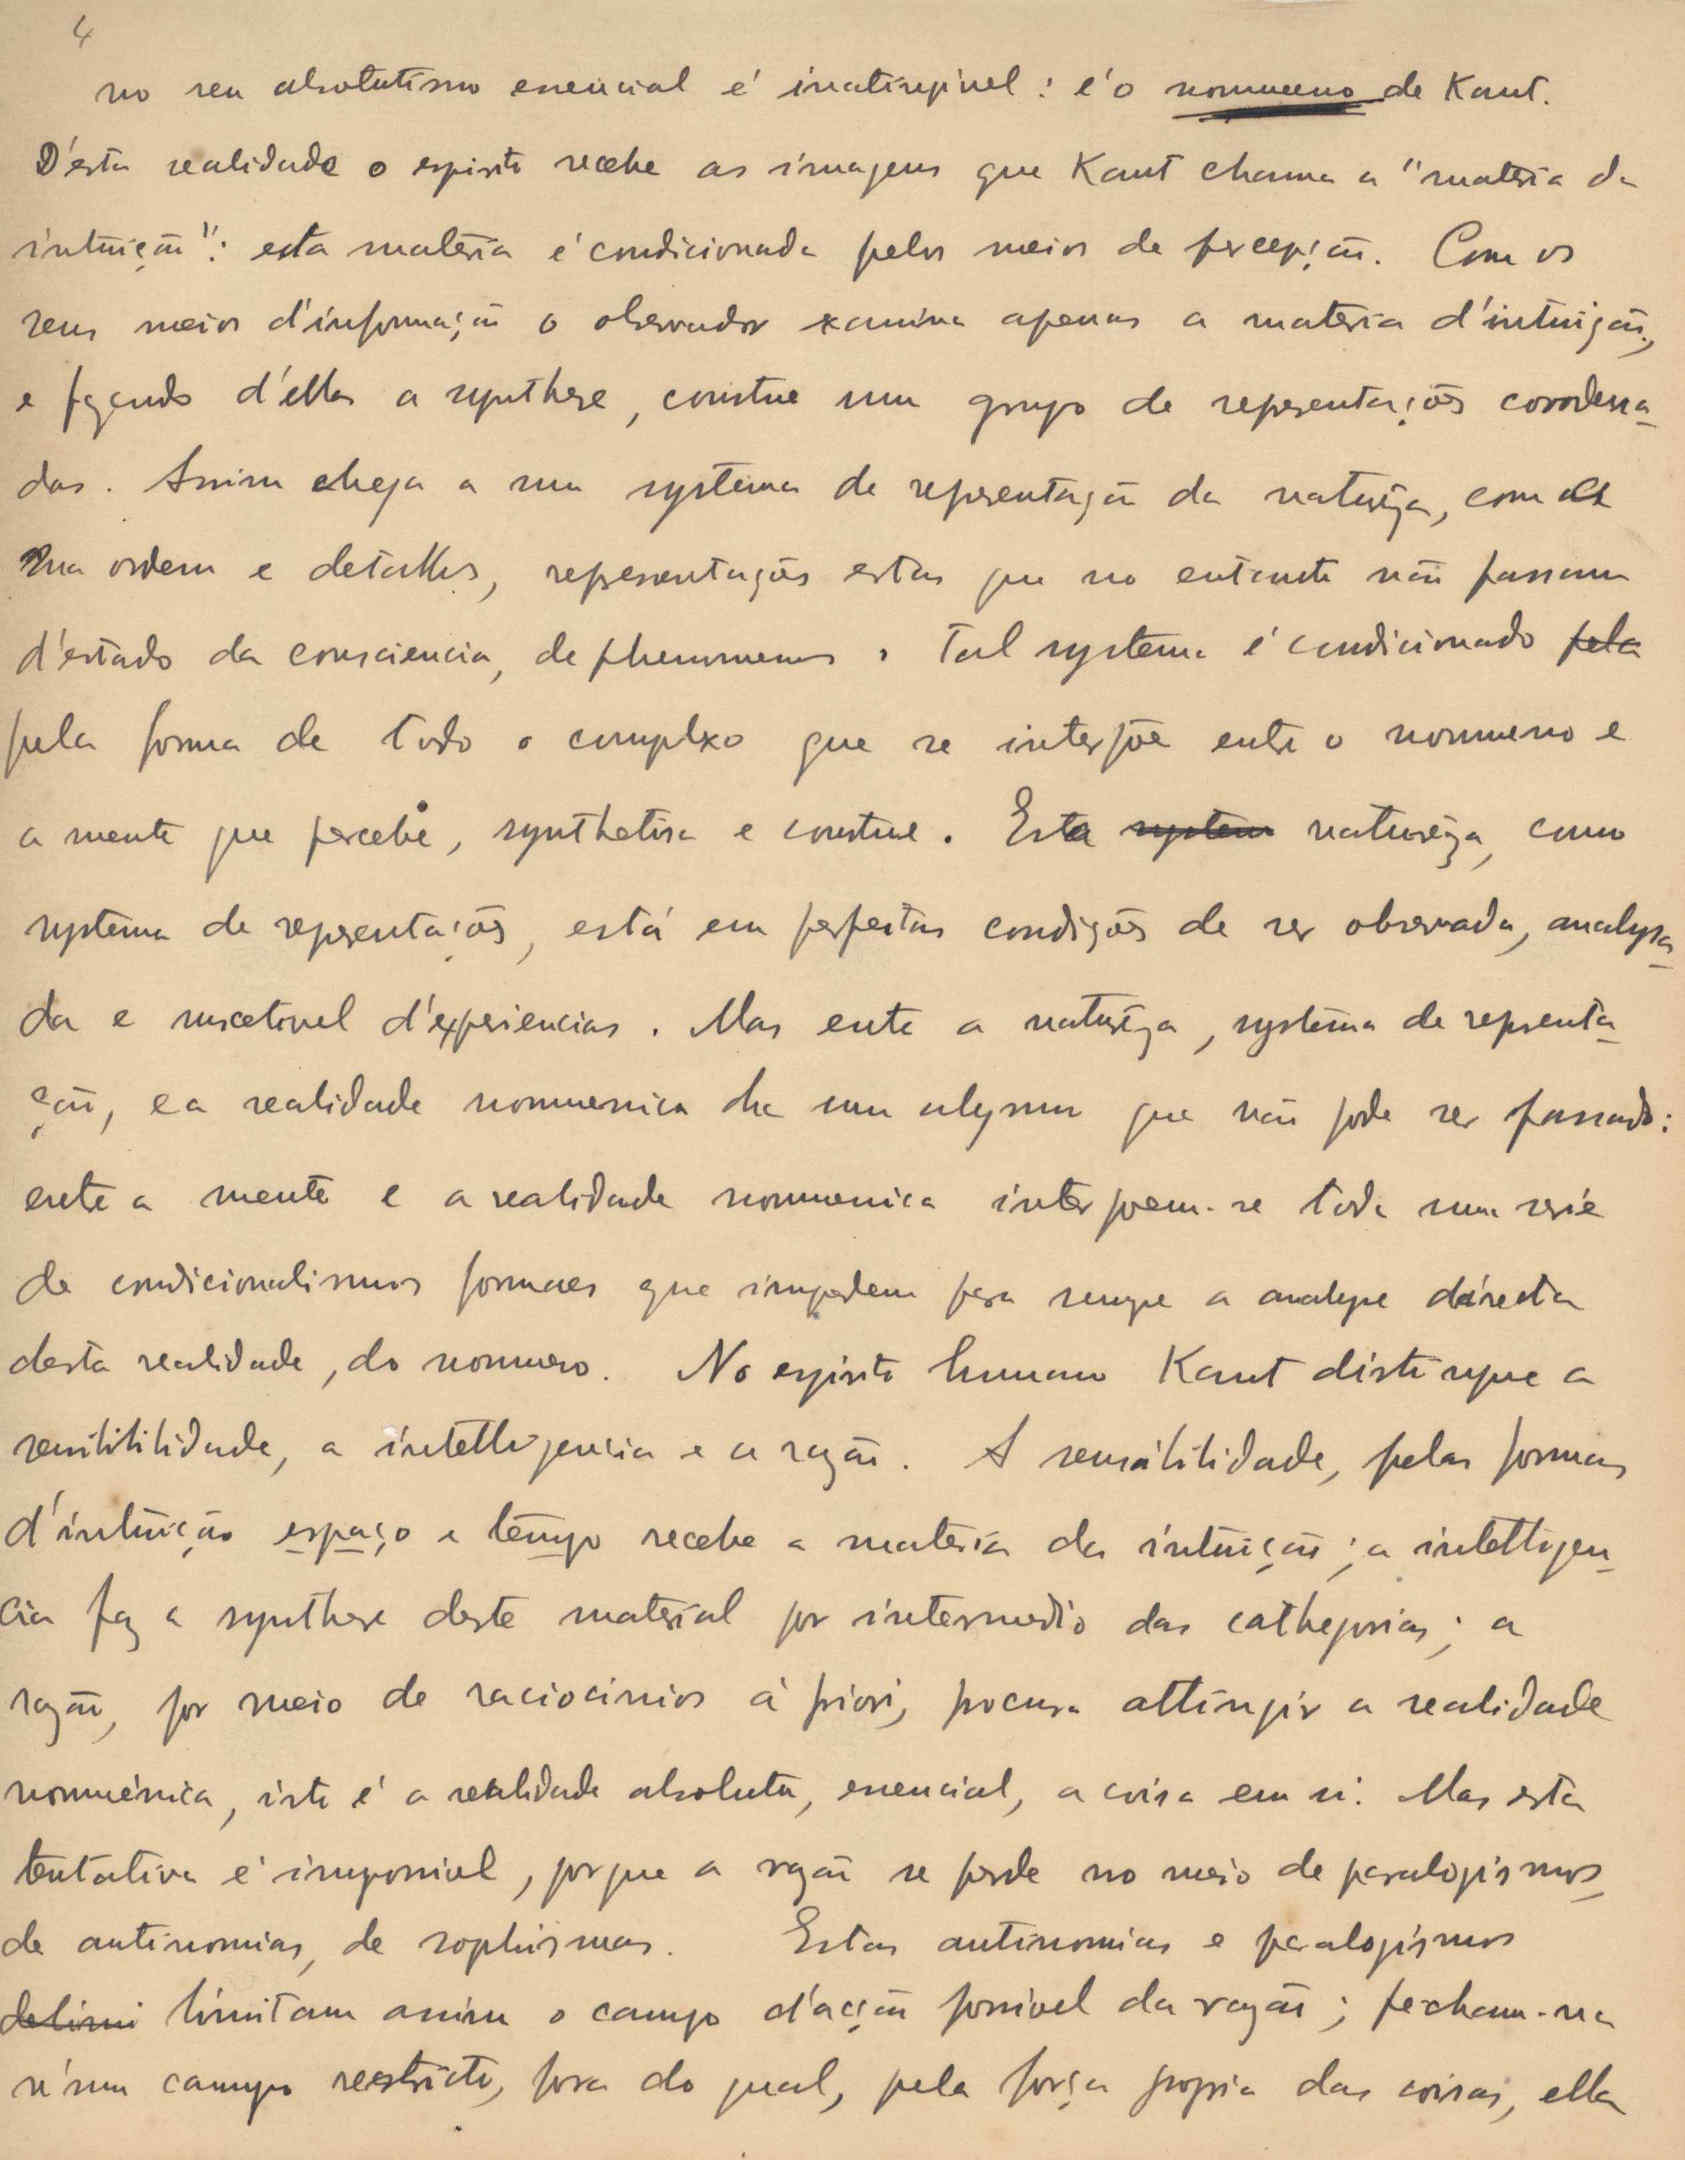 4
no seu absolutismo essencial é inatingivel: é o noumeno de Kant.
D'esta realidade o espirito recebe as imagens que Kant chama a "materia da
intuição": esta materia é condicionada pelos meios de percepção. Com os
seus meios d'informação o observador examina apenas a materia d'intuição,
e fazendo d'ellas a synthese, constrúe um grupo de representações coordena-
das. Assim chega a um systema de representação da natureza, com a
sua ordem e detalhes, representações estas que no entanto não passam
d'estado da consciencia, de phenomenos. Tal systema é condicionado pela
pela forma de todo o complexo que se interpõe entre o noumeno e
a mente que percebe, synthetisa e construe. Esta system natureza, como
systema de representações, está em perfeitas condições de ser observada, analysa-
da e suscetivel d'experiencias. Mas entre a natureza, systema de representa-
ção, e a realidade noumenica ha um abysmo que não pode ser passado:
entre a mente e a realidade noumenica interpoem-se toda uma serie
de condicionalismos formaes que impedem para sempre a analyse directa
desta realidade, do noumeno. No espirito humano Kant distingue a
sensibilidade, a intelligencia e a razão. A sensibilidade, pelas formas
d'intuição espaço e tempo recebe a materia da intuição; a intelligen-
cia faz a synthese deste material por intermedio das cathegorias; a
razão, por meio de raciocinios á priori, procura attingir a realidade
nouménica, isto é a realidade absoluta, essencial, a coisa em si. Mas esta
tentativa é impossivel, porque a razão se perde no meio de paralogismos,
de antinomias, de sophismas. Estas antinomias e paralogismos
delimi limitam assim o campo d'acção possivel da razão; fecham-na
n'um campo restricto, fora do qual, pela força propria das coisas, ella